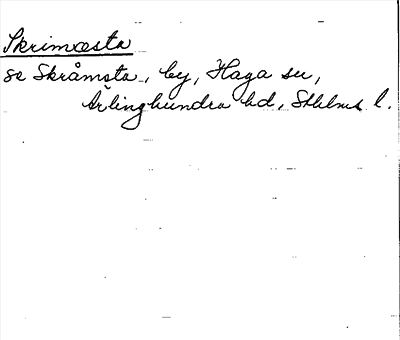 Skrimæsta
se Skråmsta, by, Haga sn,
Ärlinghundra hd, Sthlms l.